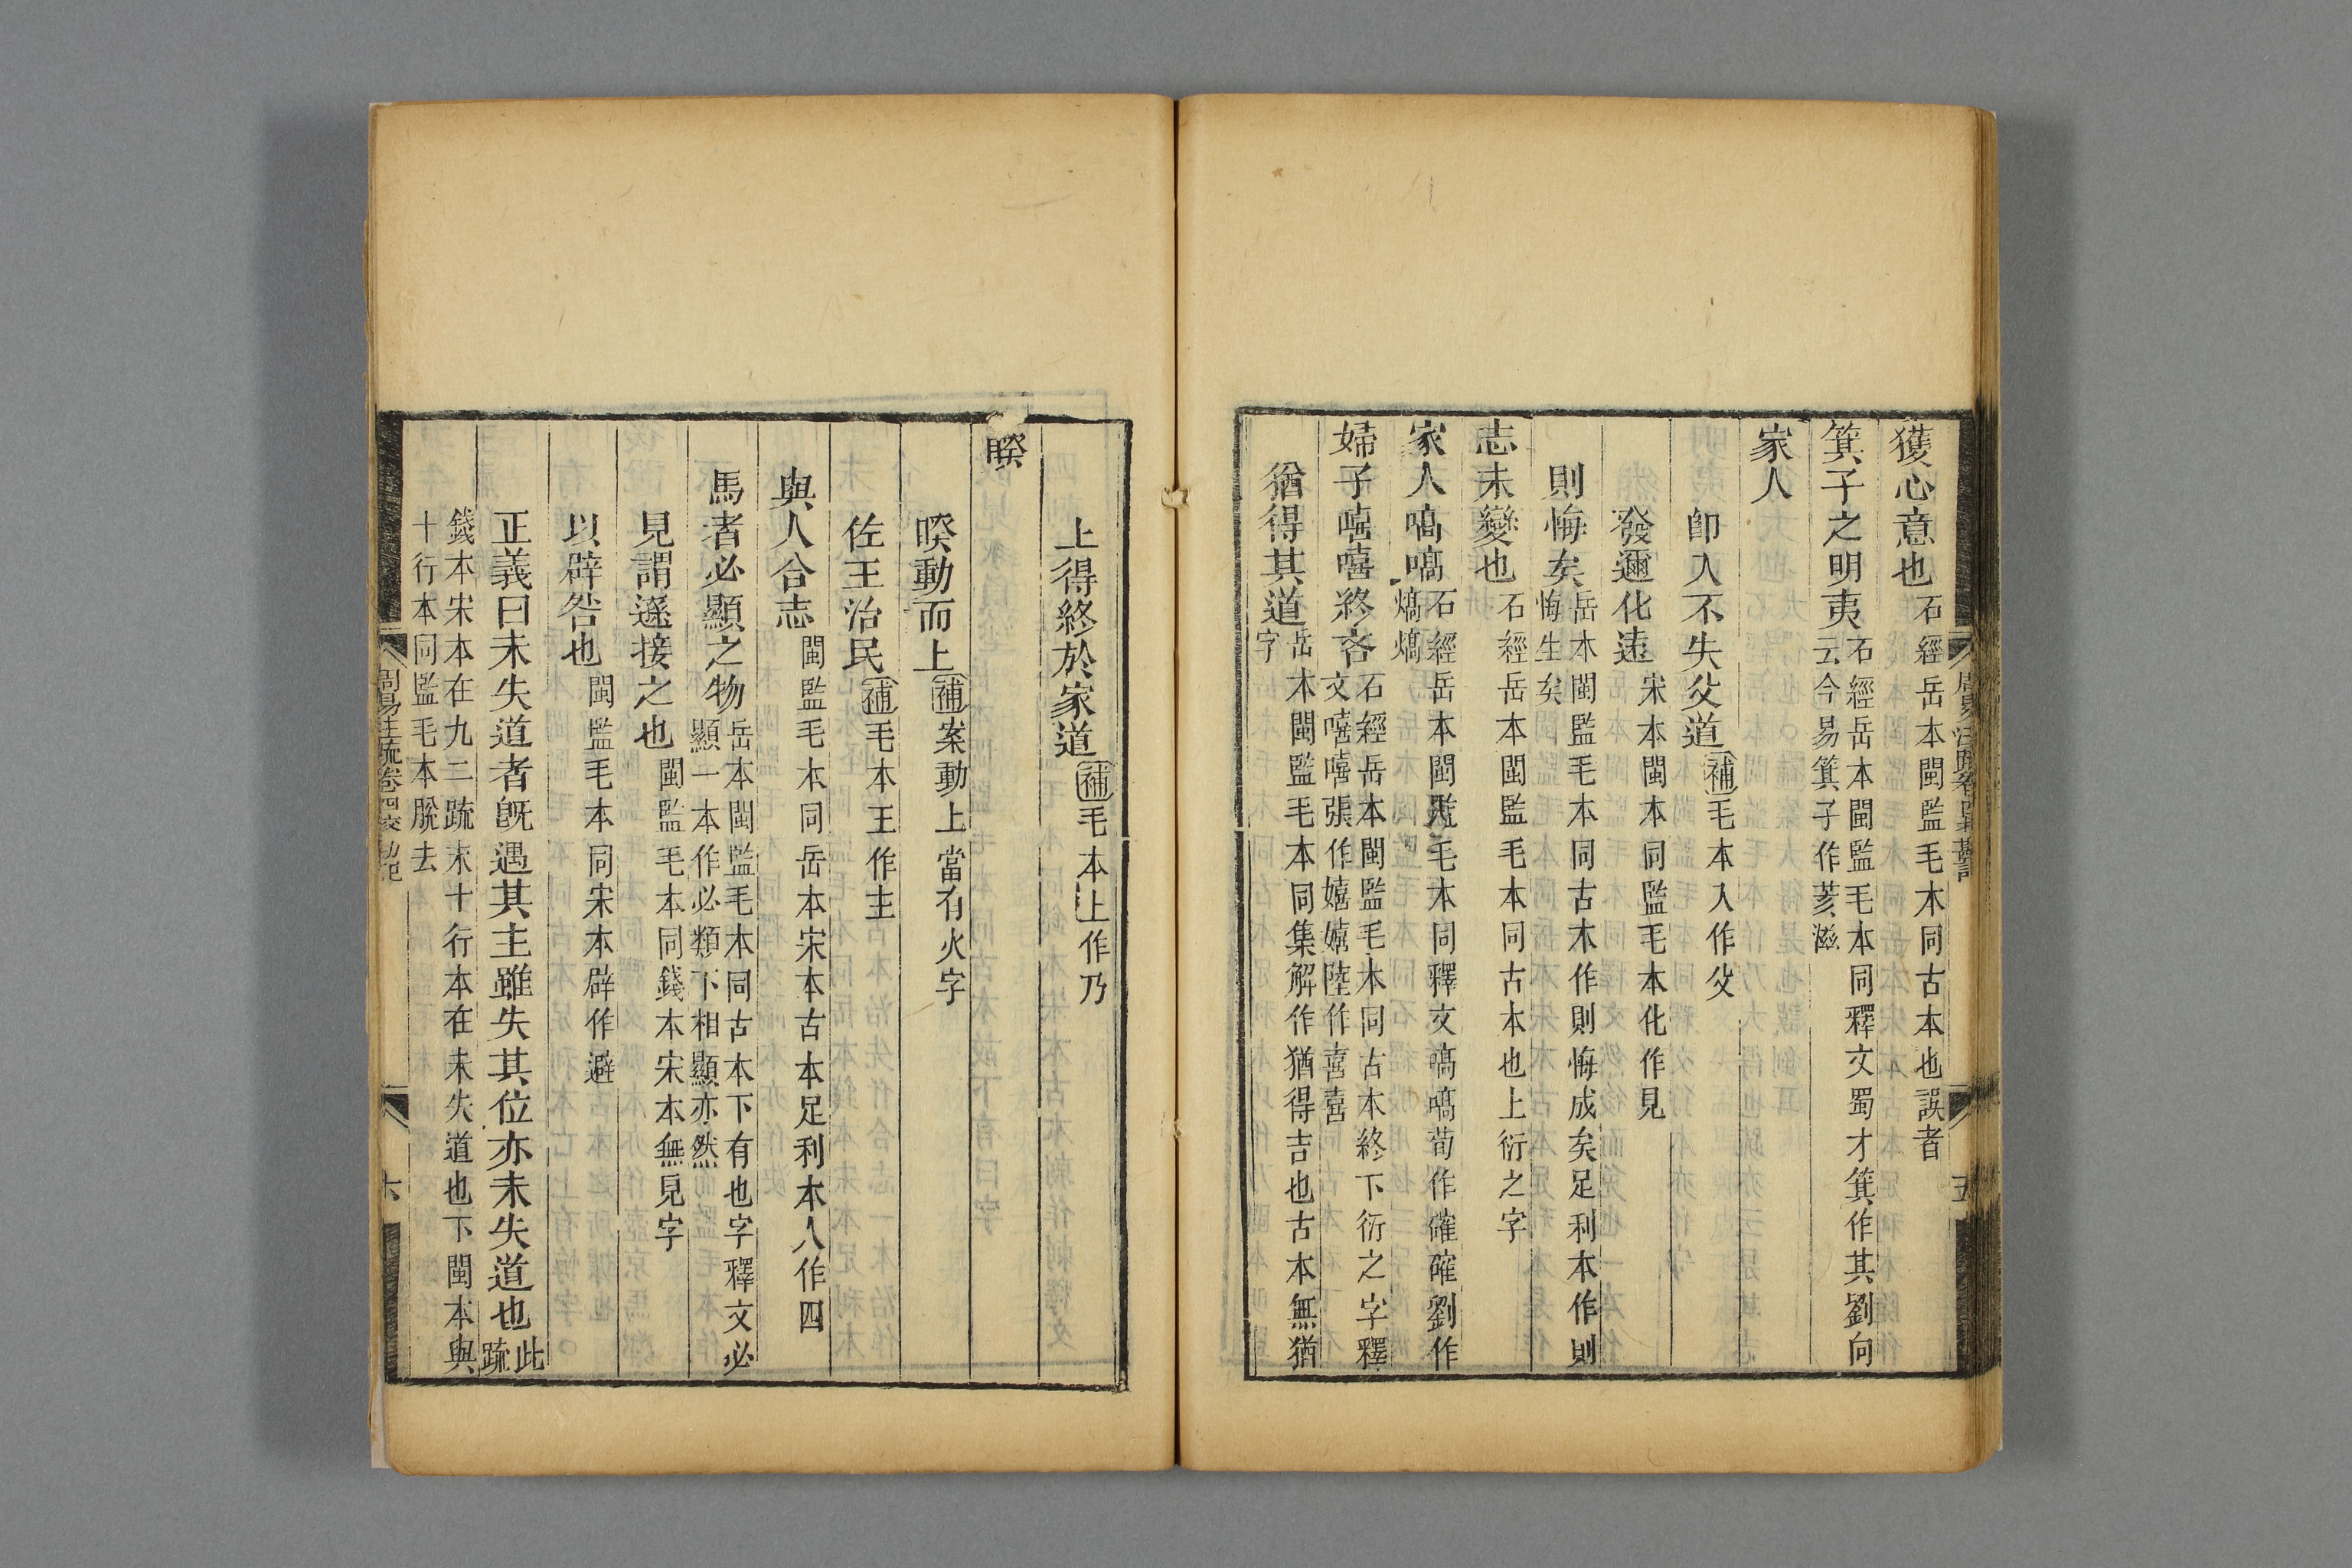 獲心意也石經岳本閩監毛本同古本也誤者
箕子之明夷石經岳本閩監毛本同釋文蜀才箕作其劉向
云今易箕子作荄滋
家人
卽入不失父道補毛本入作父
發邇化遠宋本閩本同監毛本化作見
則悔矣岳本閩監毛本同古本作則悔成矣足利本作則
悔生矣
志未變也石經岳本閩監毛本同古本也上衍之字
家人嗃嗃石經岳本閩監毛本同釋文嗃嗃荀作確確劉作
熇熇
婦子嘻嘻終吝石經岳本閩監毛本同古本終下衍之字釋
文嘻嘻張作嬉嬉陸作喜喜
猶得其道岳本閩監毛本同集解作猶得吉也古本無猶
字
周易注疏卷四挍勘記
五
上得終於家道補毛本上作乃
睽
暌動而上補案動上當有火字
佐王治民補毛本王作主
與人合志閩監毛本同岳本宋本古本足利本人作四
馬者必顯之物岳本閩監毛本同古本下有也字釋文必
顯一本作必類下相顯亦然
見謂遜接之也閩監毛本同錢本宋本無見字
以辟咎也閩監毛本同宋本辟作避
正義曰未失道者旣遇其主雖失其位亦未失道也此疏
錢本宋本在九二疏末十行本在未失道也下閩本與
十行本同監毛本脫去
周易注疏卷四挍勘記
六